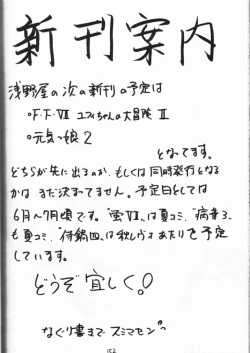 新刊案内
浅野屋の次の新刊の予定は
○F.F-VII ユフィちゃんの大冒険 II
○元気っ娘2
となってます。
どちらが先に出るのか、もしくは同時発行となる
かは まだ決まってません。予定日としては
6月〜7月頃です。"蛍VII"は夏コミ、"病毒3"
も夏コミ、"侍鍋四"は秋レヴォあたりを予定
しています。
どうぞ宜しく。
なぐり書きでスミマセン
152